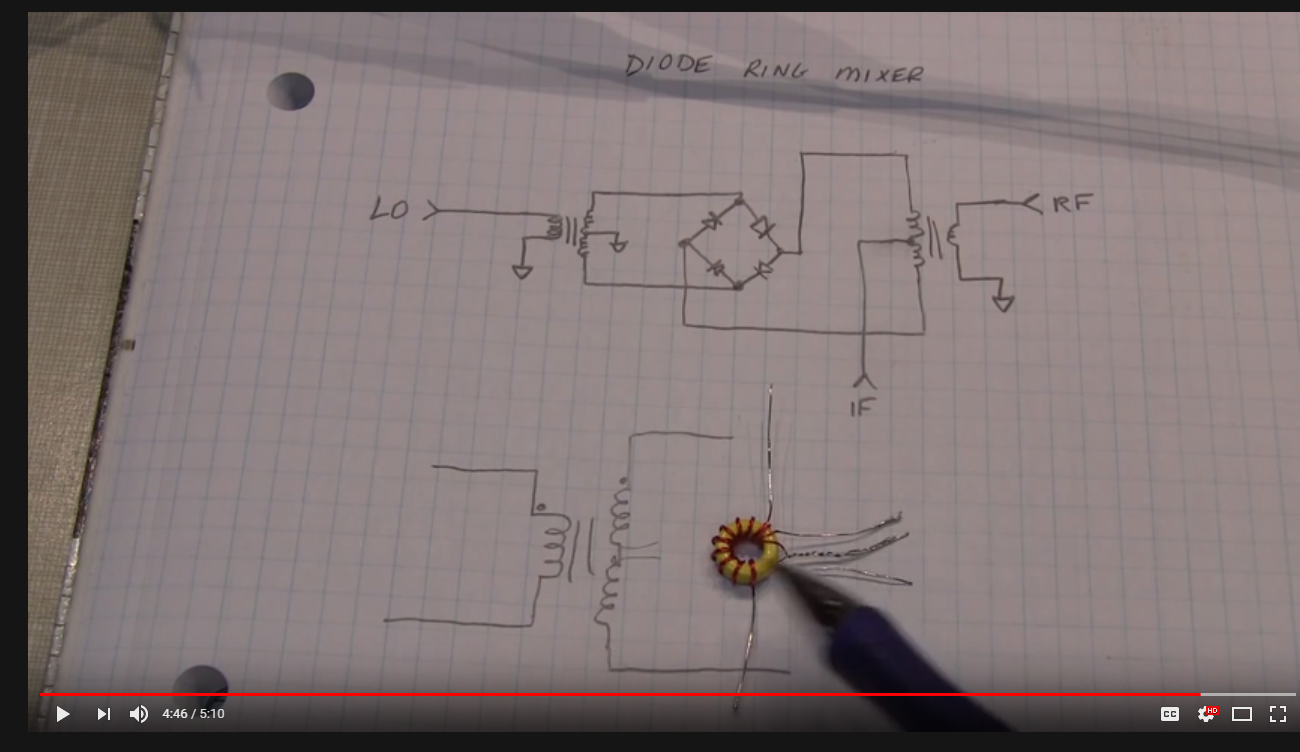 DIODE RING MIXER
LO
RF
IF
4:46 / 5:10
CC
HD